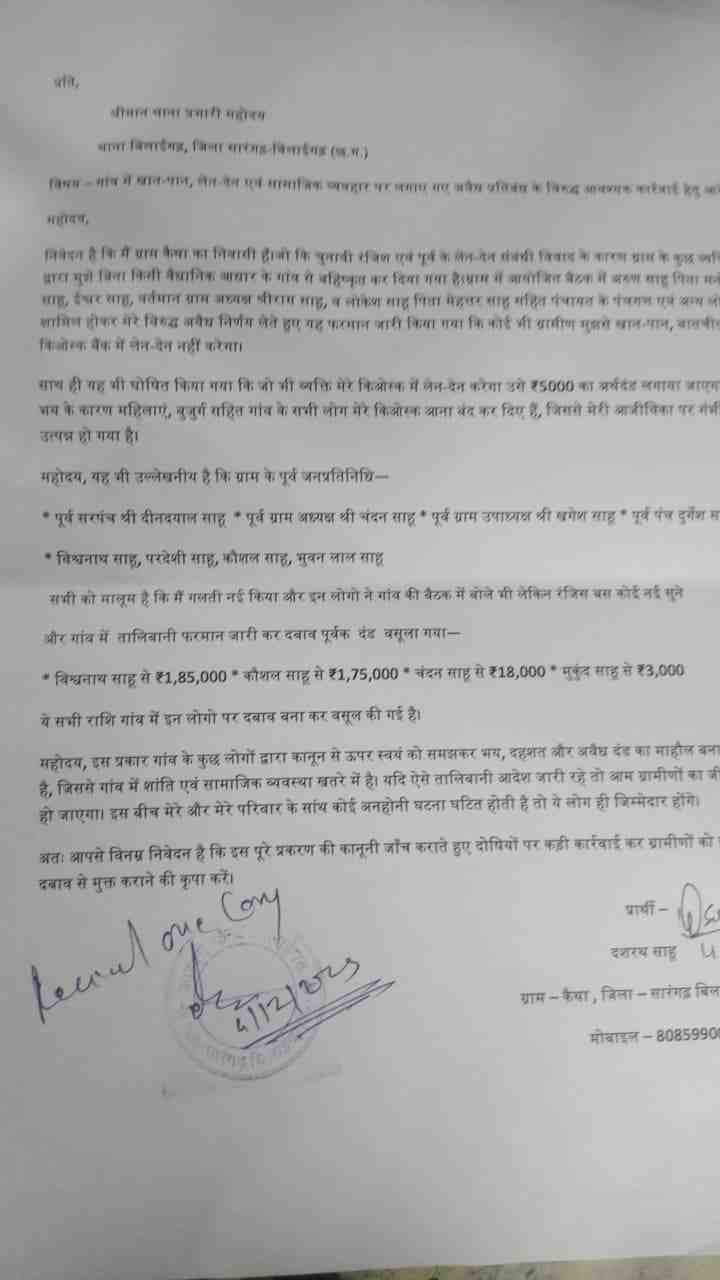 प्रति,
श्रीमान थाना प्रभारी महोदय
थाना बिलाईगढ़, जिला सारंगढ़-बिलाईगढ़ (छ.ग.)
विषय – गांव में खान-पान, लेन-देन एवं सामाजिक व्यवहार पर लगाए गए अवैध प्रतिबंध के विरुद्ध आवश्यक कार्रवाई हेतु
महोदय,
निवेदन है कि मैं ग्राम कैथा का निवासी हूँ।जो कि चुनावी रंजिश एवं पूर्व के लेन-देन संबंधी विवाद के कारण ग्राम के कुछ
द्वारा मुझे बिना किसी वैधानिक आधार के गांव से बहिष्कृत कर दिया गया है।ग्राम में आयोजित बैठक में अरुण साहू पिता
साहू, ईश्वर साहू, वर्तमान ग्राम अध्यक्ष श्रीराम साहू, व लोकेश साहू पिता मेहत्तर साहू सहित पंचायत के पंचगण एवं अन्य
शामिल होकर मेरे विरुद्ध अवैध निर्णय लेते हुए यह फरमान जारी किया गया कि कोई भी ग्रामीण मुझसे खान-पान, बातचीत
किओस्क बैंक में लेन-देन नहीं करेगा।
साथ ही यह भी घोषित किया गया कि जो भी व्यक्ति मेरे किओस्क में लेन-देन करेगा उसे ₹5000 का अर्थदंड लगाया
भय के कारण महिलाएं, बुजुर्ग सहित गांव के सभी लोग मेरे किओस्क आना बंद कर दिए हैं, जिससे मेरी आजीविका पर
उत्पन्न हो गया है।
महोदय, यह भी उल्लेखनीय है कि ग्राम के पूर्व जनप्रतिनिधि—
* पूर्व सरपंच श्री दीनदयाल साहू * पूर्व ग्राम अध्यक्ष श्री चंदन साहू * पूर्व ग्राम उपाध्यक्ष श्री खगेश साहू * पूर्व पंच दुर्गेश
* विश्वनाथ साहू, परदेशी साहू, कौशल साहू, भुवन लाल साहू
सभी को मालूम है कि मैं गलती नई किया और इन लोगो ने गांव की बैठक में बोले भी लेकिन रंजिस बस कोई नई सुने
और गांव में तालिबानी फरमान जारी कर दबाव पूर्वक दंड वसूला गया—
* विश्वनाथ साहू से ₹1,85,000 * कौशल साहू से ₹1,75,000 * चंदन साहू से ₹18,000 * मुकुंद साहू से ₹3,000
ये सभी राशि गांव में इन लोगो पर दबाव बना कर वसूल की गई है।
महोदय, इस प्रकार गांव के कुछ लोगों द्वारा कानून से ऊपर स्वयं को समझकर भय, दहशत और अवैध दंड का माहौल
है, जिससे गांव में शांति एवं सामाजिक व्यवस्था खतरे में है। यदि ऐसे तालिबानी आदेश जारी रहे तो आम ग्रामीणों का
हो जाएगा। इस बीच मेरे और मेरे परिवार के सांथ कोई अनहोनी घटना घटित होती है तो ये लोग ही जिम्मेदार होंगे।
अतः आपसे विनम्र निवेदन है कि इस पूरे प्रकरण की कानूनी जाँच कराते हुए दोषियों पर कड़ी कार्रवाई कर ग्रामीणों को
दबाव से मुक्त कराने की कृपा करें।
प्रार्थी –
दशरथ साहू
ग्राम – कैथा , जिला – सारंगढ़
मोबाइल – 8085990
one Copy